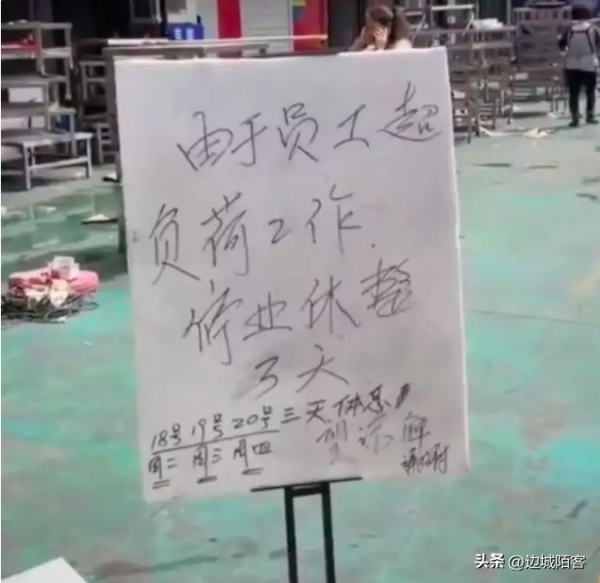 由于员工超
负荷工作
停业休整
3天
18号19号20号三天休息
周二 周三 周四
望谅解
谢谢
头条 @边城陌客